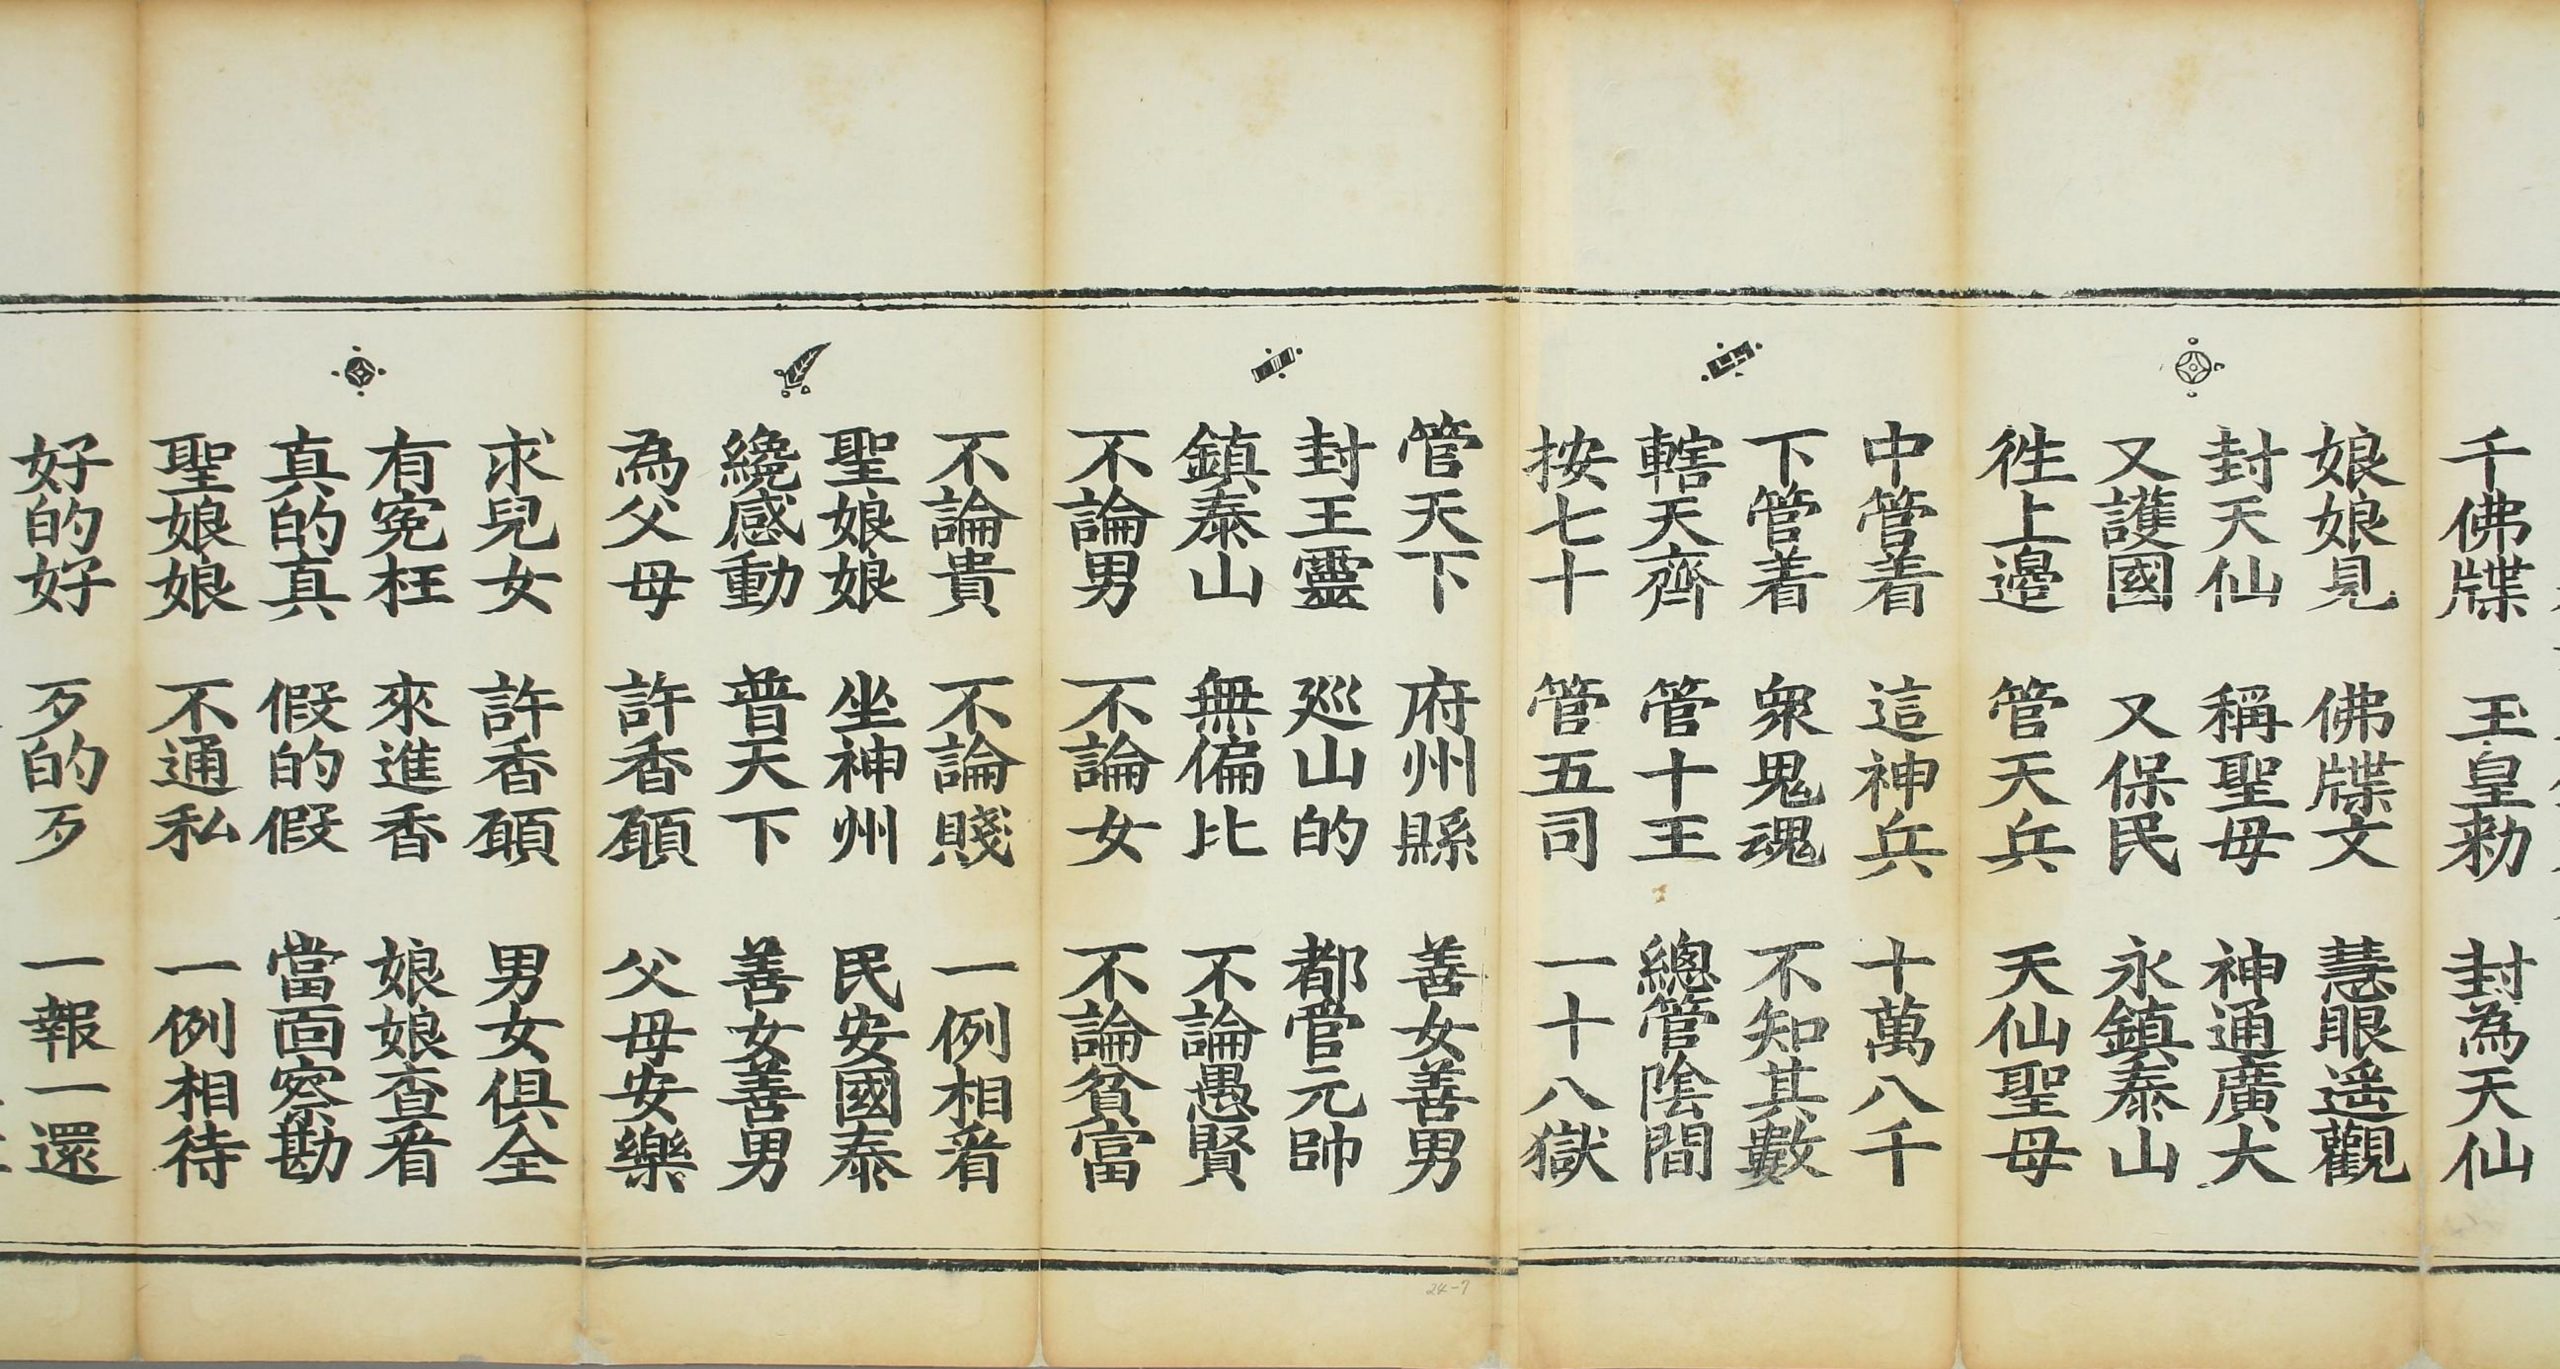 千佛牒 玉皇勑 封為天仙
娘娘見 佛牒文 慧眼遥觀
封天仙 稱聖母 神通廣大
又護國 又保民 永鎮泰山
徃上邉 管天兵 天仙聖母
中管着 這神兵 十萬八千
下管着 衆鬼魂 不知其數
轄天齊 管十王 總管陰間
按七十 管五司 一十八獄
管天下 府州縣 善女善男
封王靈 廵山的 都管元帥
鎮泰山 無偏比 不論愚賢
不論男 不論女 不論貧富
不論貴 不論賤 一例相看
聖娘娘 坐神州 民安國泰
纔感動 普天下 善女善男
為父母 許香願 父母安樂
求兒女 許香願 男女俱全
有寃枉 來進香 娘娘查看
真的真 假的假 當面察勘
聖娘娘 不通私 一例相待
好的好 歹的歹 一報一還
24-7